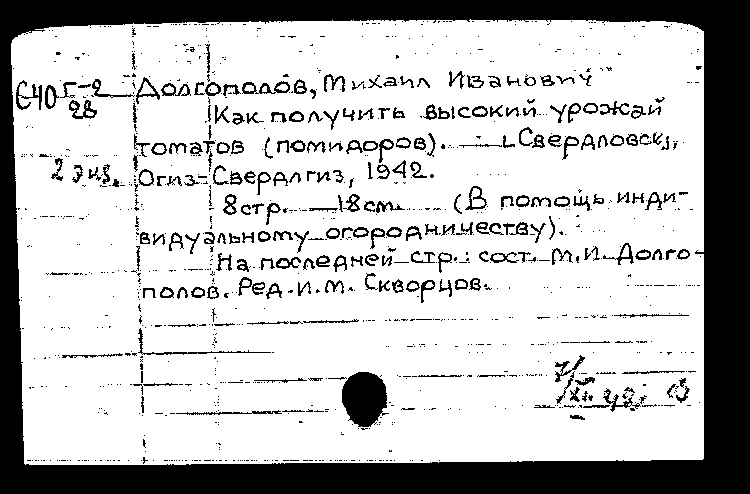 Е40 Г-2 Долгополов, Михаил Иванович
28
Как получить высокий урожай
томатов (помидоров). — [Свердловск],
2 экз. Огиз-Свердлгиз, 1942.
8 стр. — 18 см. (В помощь инди-
видуальному огородничеству).
На последней стр.: сост. М.И. Долго-
полов. Ред. И.М. Скворцов.